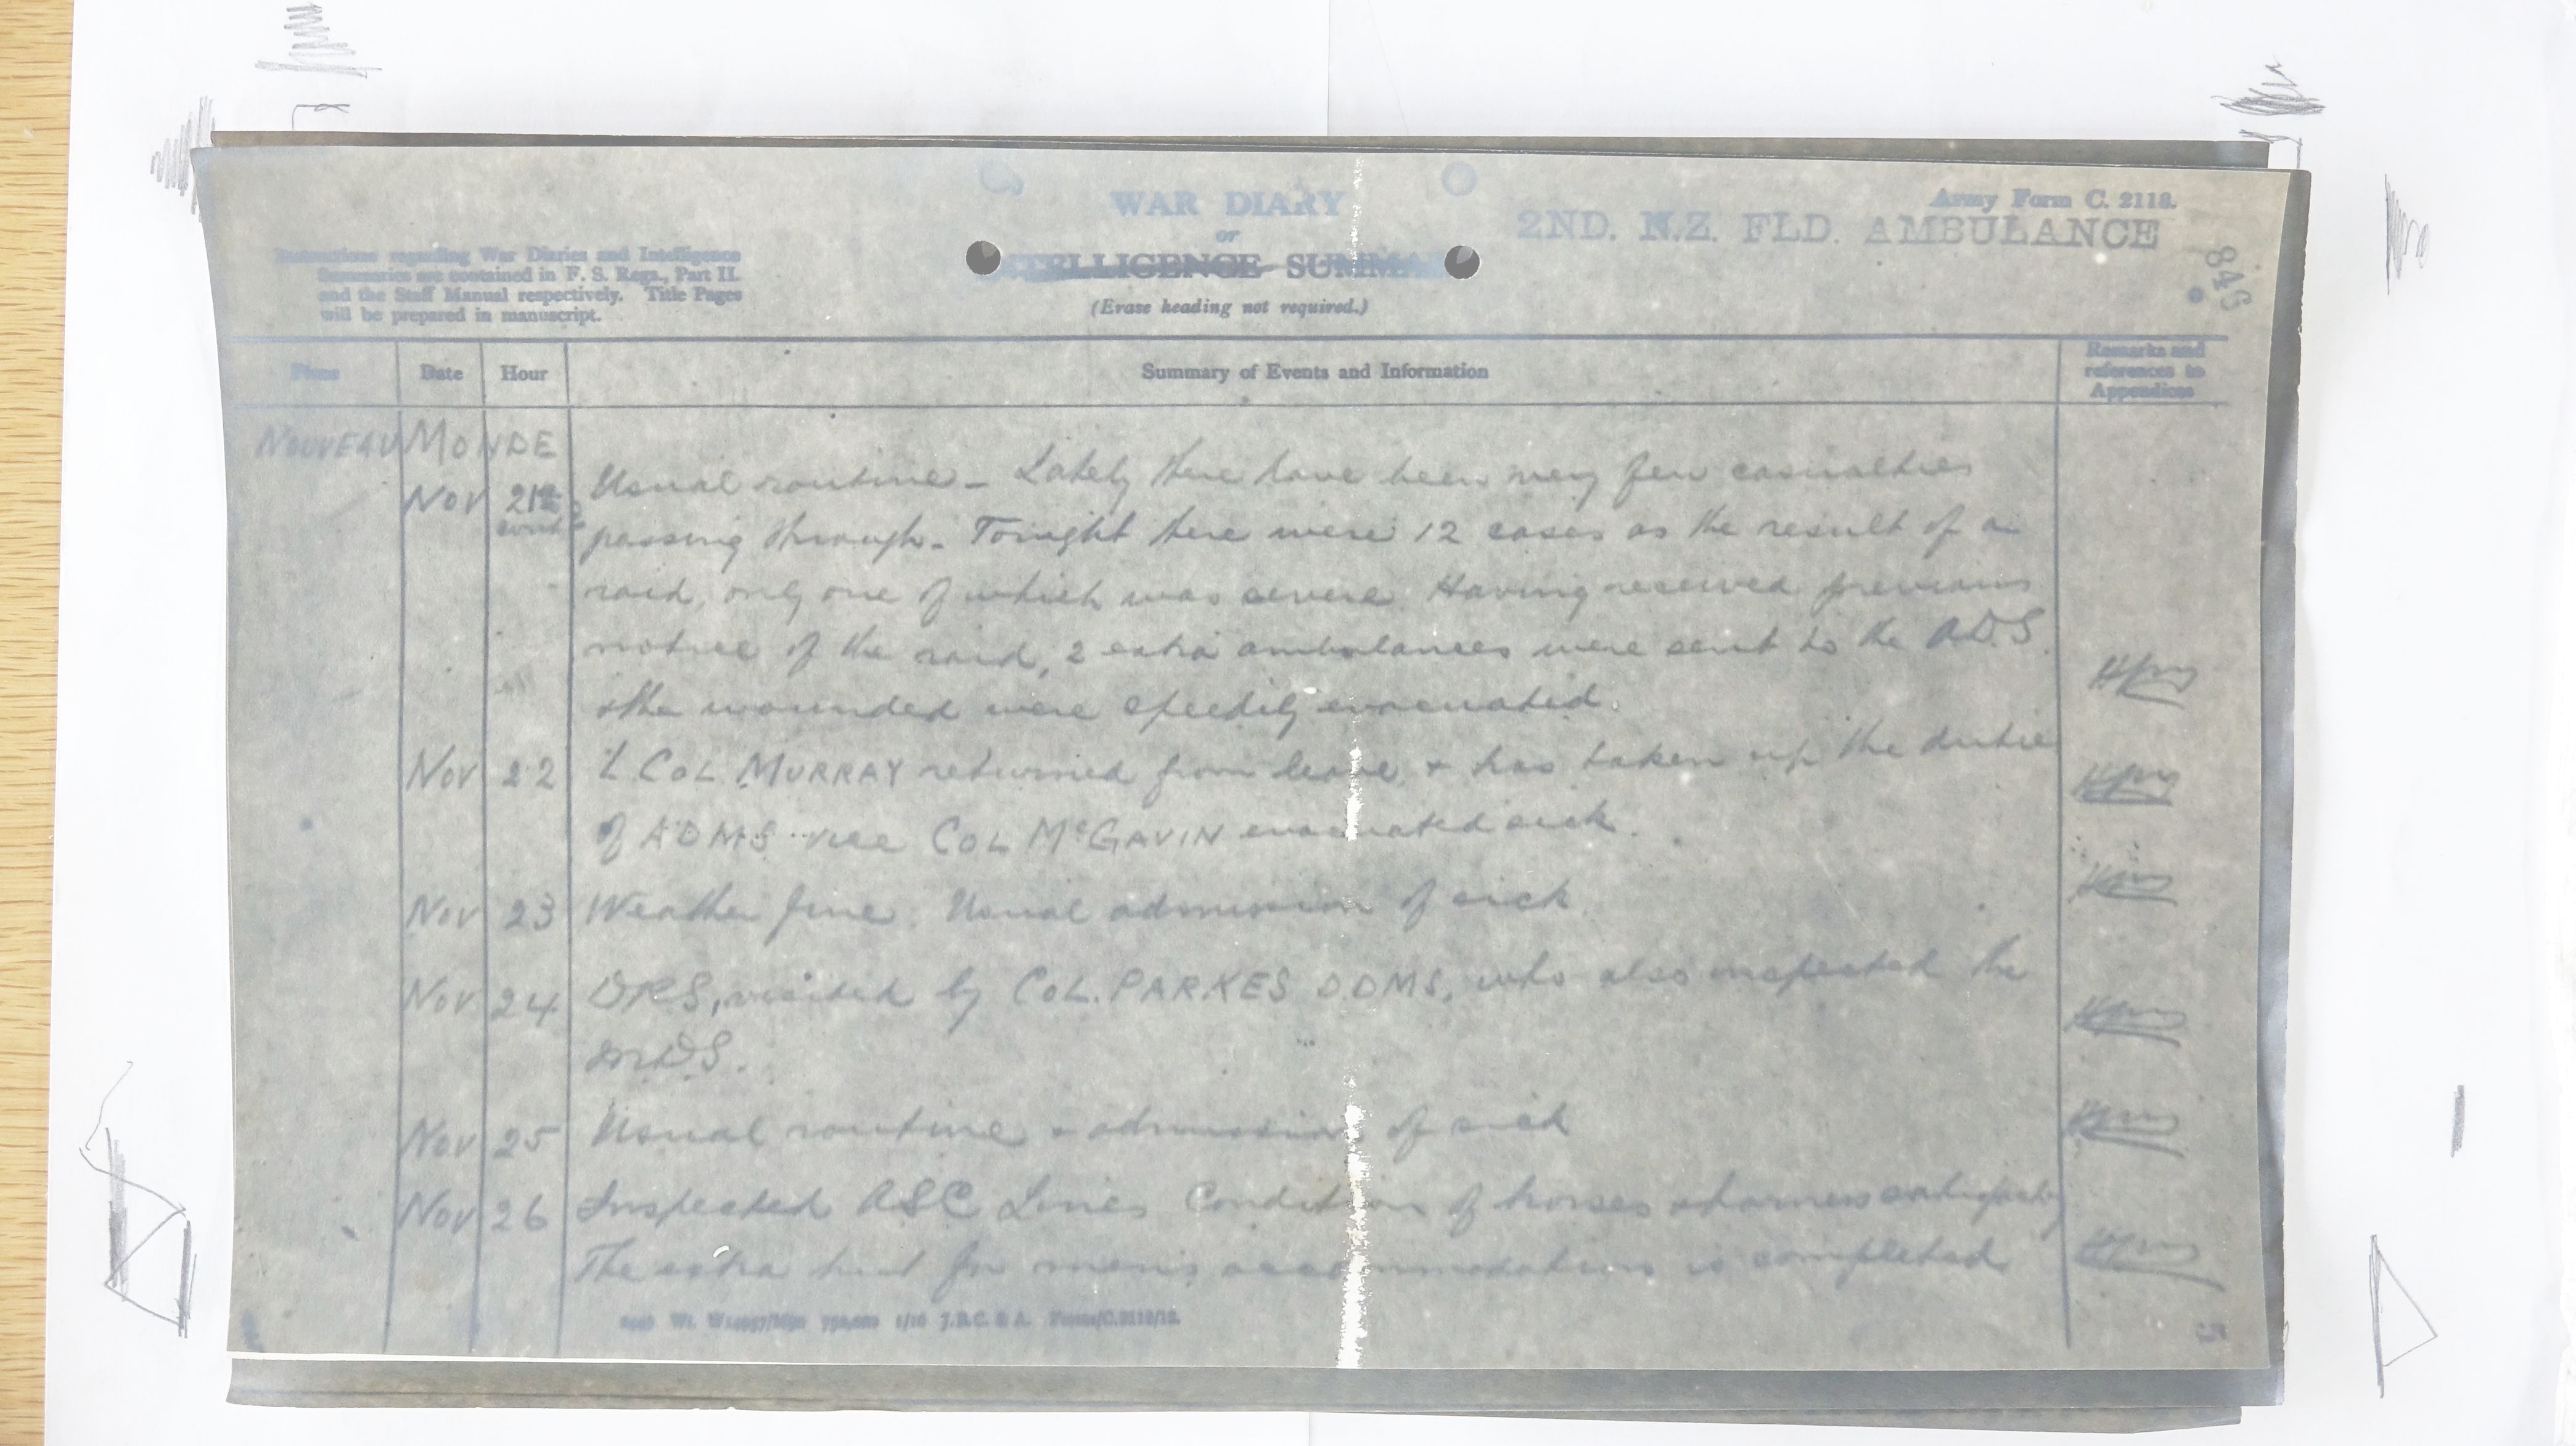 WAR DIARY
or
INTELLIGENCE SUMMARY
(Erase heading not required.)
Army Form C. 2118.
2ND. N.Z. FLD. AMBULANCE
846
Instructions regarding War Diaries and Intelligence
Summaries are contained in F. S. Regs., Part II.
and the Staff Manual respectively. Title Pages
will be prepared in manuscript.
Place Date Hour Summary of Events and Information Remarks and references to Appendices
NOUVEAU MONDE
Nov 21st Usual routine - Lately there have been very few casualties
cont'd passing through. Tonight there were 12 cases as the result of a
raid, only one of which was severe. Having received previous
notice of the raid, 2 extra ambulances were sent to the A.D.S.
& the wounded were speedily evacuated.
Nov 22 Lt COL MURRAY returned from leave & has taken up the duties
of ADMS vice COL McGAVIN evacuated sick.
Nov 23 Weather fine. Usual admission of sick
Nov 24 DRS, visited by COL. PARKES D.DMS, who also inspected the
M.D.S.
Nov 25 Usual routine & admission of sick
Nov 26 Inspected ASC Lines Condition of horses & harness satisfactory
The extra hut for men's accommodation is completed